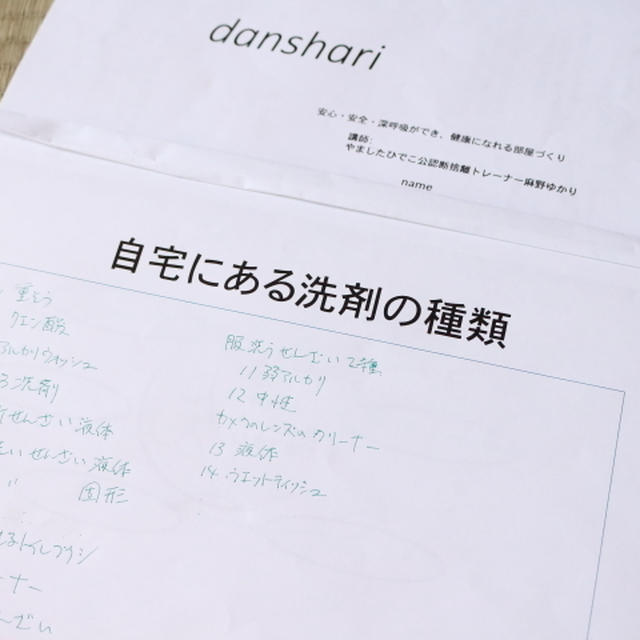 danshari
安心・安全・深呼吸ができ、健康になれる部屋づくり
講師:
やましたひでこ公認断捨離トレーナー麻野ゆかり
name
自宅にある洗剤の種類
重そう
クエン酸
アルカリウォッシュ
洗剤
せんざい 液体
せんざい 液体
〃 固形
トイレブラシ
ーナー
服 洗うせんざい2種
11 弱アルカリ
12 中性
カメラのレンズの クリーナー
13 液体
14. ウエットティッシュ